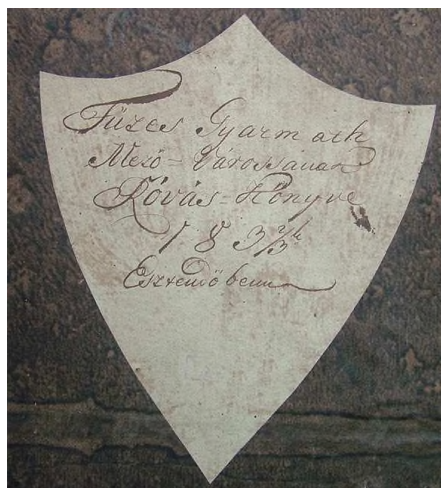 Füzes Gyarmath
Mező-Városának
Rovás-Könyve
183 2/3
Esztendőbenn